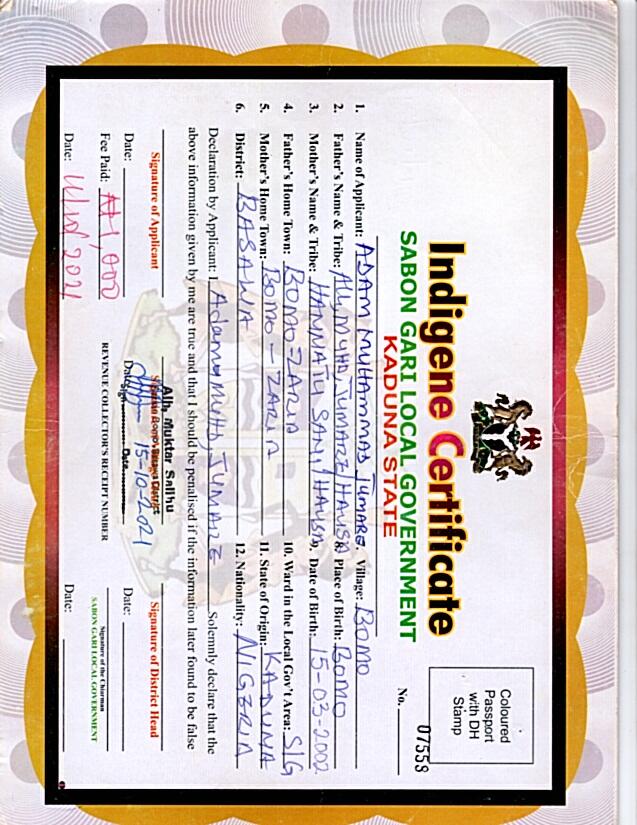 Indigene Certificate
SABON GARI LOCAL GOVERNMENT
KADUNA STATE
Coloured
Passport
with DH
Stamp
No. 07553
1. Name of Applicant: ADAM MUHAMMAD Jumare. Village: BOMO
2. Father's Name & Tribe: Aly MUHD JUMARE/HAUSA 8. Place of Birth: BOMO
3. Mother's Name & Tribe: HANNATU SANI/HAUSA 9. Date of Birth: 15-03-2002
4. Father's Home Town: BOMO-ZARIA 10. Ward in the Local Gov't Area: S/G
5. Mother's Home Town: BOMO-ZARIA 11. State of Origin: KADUNA
6. District: BASAWA 12. Nationality: NIGERIA
Declaration by Applicant: I, Adamu MUHD JUMARE Solemnly declare that the
above information given by me are true and that I should be penalised if the information later found to be false
Signature of Applicant
Signature of District Head
Alh. Muktar Salihu
Date: 15-10-2021
Date:
Fee Paid: ₦1,000
REVENUE COLLECTOR'S RECEIPT NUMBER
Signature of the Chairman
SABON GARI LOCAL GOVERNMENT
Date: 2021
Date: